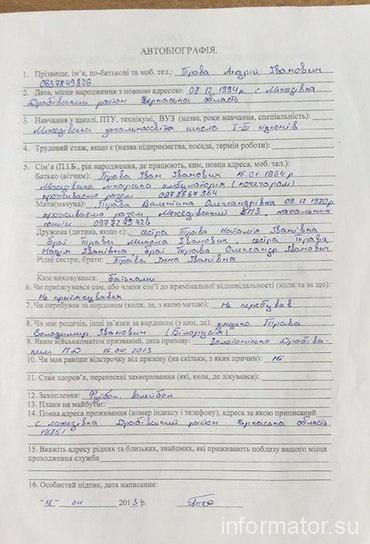 АВТОБІОГРАФІЯ.
1. Прізвище, ім'я, по-батькові та моб. тел.: Трава Андрій Іванович
2. Дата, місце народження з повною адресою: 08.12.1994р с. Мехедівка
Драбівський район Черкаська область
3. Навчання у школі, ПТУ, технікумі, ВУЗ (назва, роки навчання, спеціальність):
Мехедівська загальноосвітня школа І-ІІІ ступенів
4. Трудовий стаж, якщо є (назва підприємства, посада, термін роботи):
5. Сім'я (П.І.Б., рік народження, де працюють, ким, повна адреса, моб. тел.):
Батько (вітчим): Трава Іван Іванович 15.01.1964р
проживаємо разом
Мати(мачуха): Трава Валентина Олександрівна
проживаємо разом Мехедівський
Дружина (дитина, якщо є): сестра Трава Наталія Іванівна
брат Трава Микола Іванович сестра Трава
Надія Іванівна брат Трава Олександр Іванович
Рідні сестри, брати: Трава Інна Іванівна
Ким виховувався: батьками
6. Чи притягувався сам, або члени сім'ї до кримінальної відповідальності (коли та за що):
Не притягувався
7. Чи перебував за кордоном (коли, де, з якою метою): Не перебував
8. Чи має родичів, інші зв'язки за кордоном (з ким, де): дядько Трава
Володимир Іванович (Білорусія)
9. Яким військкоматом призваний, дату призову:
10. Чи мав раніше відстрочку від призову (на скільки, з яких причин): Ні
11. Стан здоров'я, перенесені захворювання (які, коли, де лікувався):
12. Захоплення: Футбол, Волейбол
13. Плани на майбутнє:
14. Повна адреса проживання (номер індексу і телефону), адреса за якою приписаний
с. Мехедівка Драбівський район Черкаська область
15. Вкажіть адресу рідних та близьких, знайомих, які проживають поблизу вашого місця
проходження служби
16. Особистий підпис, дата написання:
"18" 04 2013 р.
informator.su